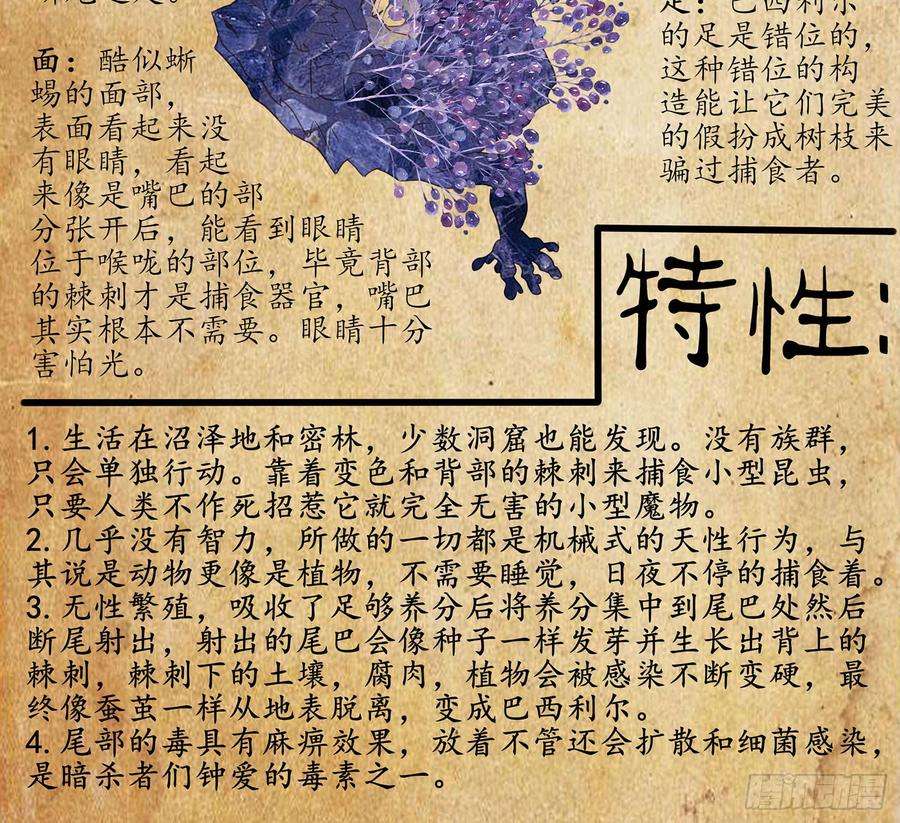 面：酷似蜥
蜴的面部，
表面看起来没
有眼睛，看起
来像是嘴巴的部
分张开后，能看到眼睛
位于喉咙的部位，毕竟背部
的棘刺才是捕食器官，嘴巴
其实根本不需要。眼睛十分
害怕光。
足：巴西利尔
的足是错位的，
这种错位的构
造能让它们完美
的假扮成树枝来
骗过捕食者。
特性：
1.生活在沼泽地和密林，少数洞窟也能发现。没有族群，
只会单独行动。靠着变色和背部的棘刺来捕食小型昆虫，
只要人类不作死招惹它就完全无害的小型魔物。
2.几乎没有智力，所做的一切都是机械式的天性行为，与
其说是动物更像是植物，不需要睡觉，日夜不停的捕食着。
3.无性繁殖，吸收了足够养分后将养分集中到尾巴处然后
断尾射出，射出的尾巴会像种子一样发芽并生长出背上的
棘刺，棘刺下的土壤，腐肉，植物会被感染不断变硬，最
终像蚕茧一样从地表脱离，变成巴西利尔。
4.尾部的毒具有麻痹效果，放着不管还会扩散和细菌感染，
是暗杀者们钟爱的毒素之一。
腾讯动漫